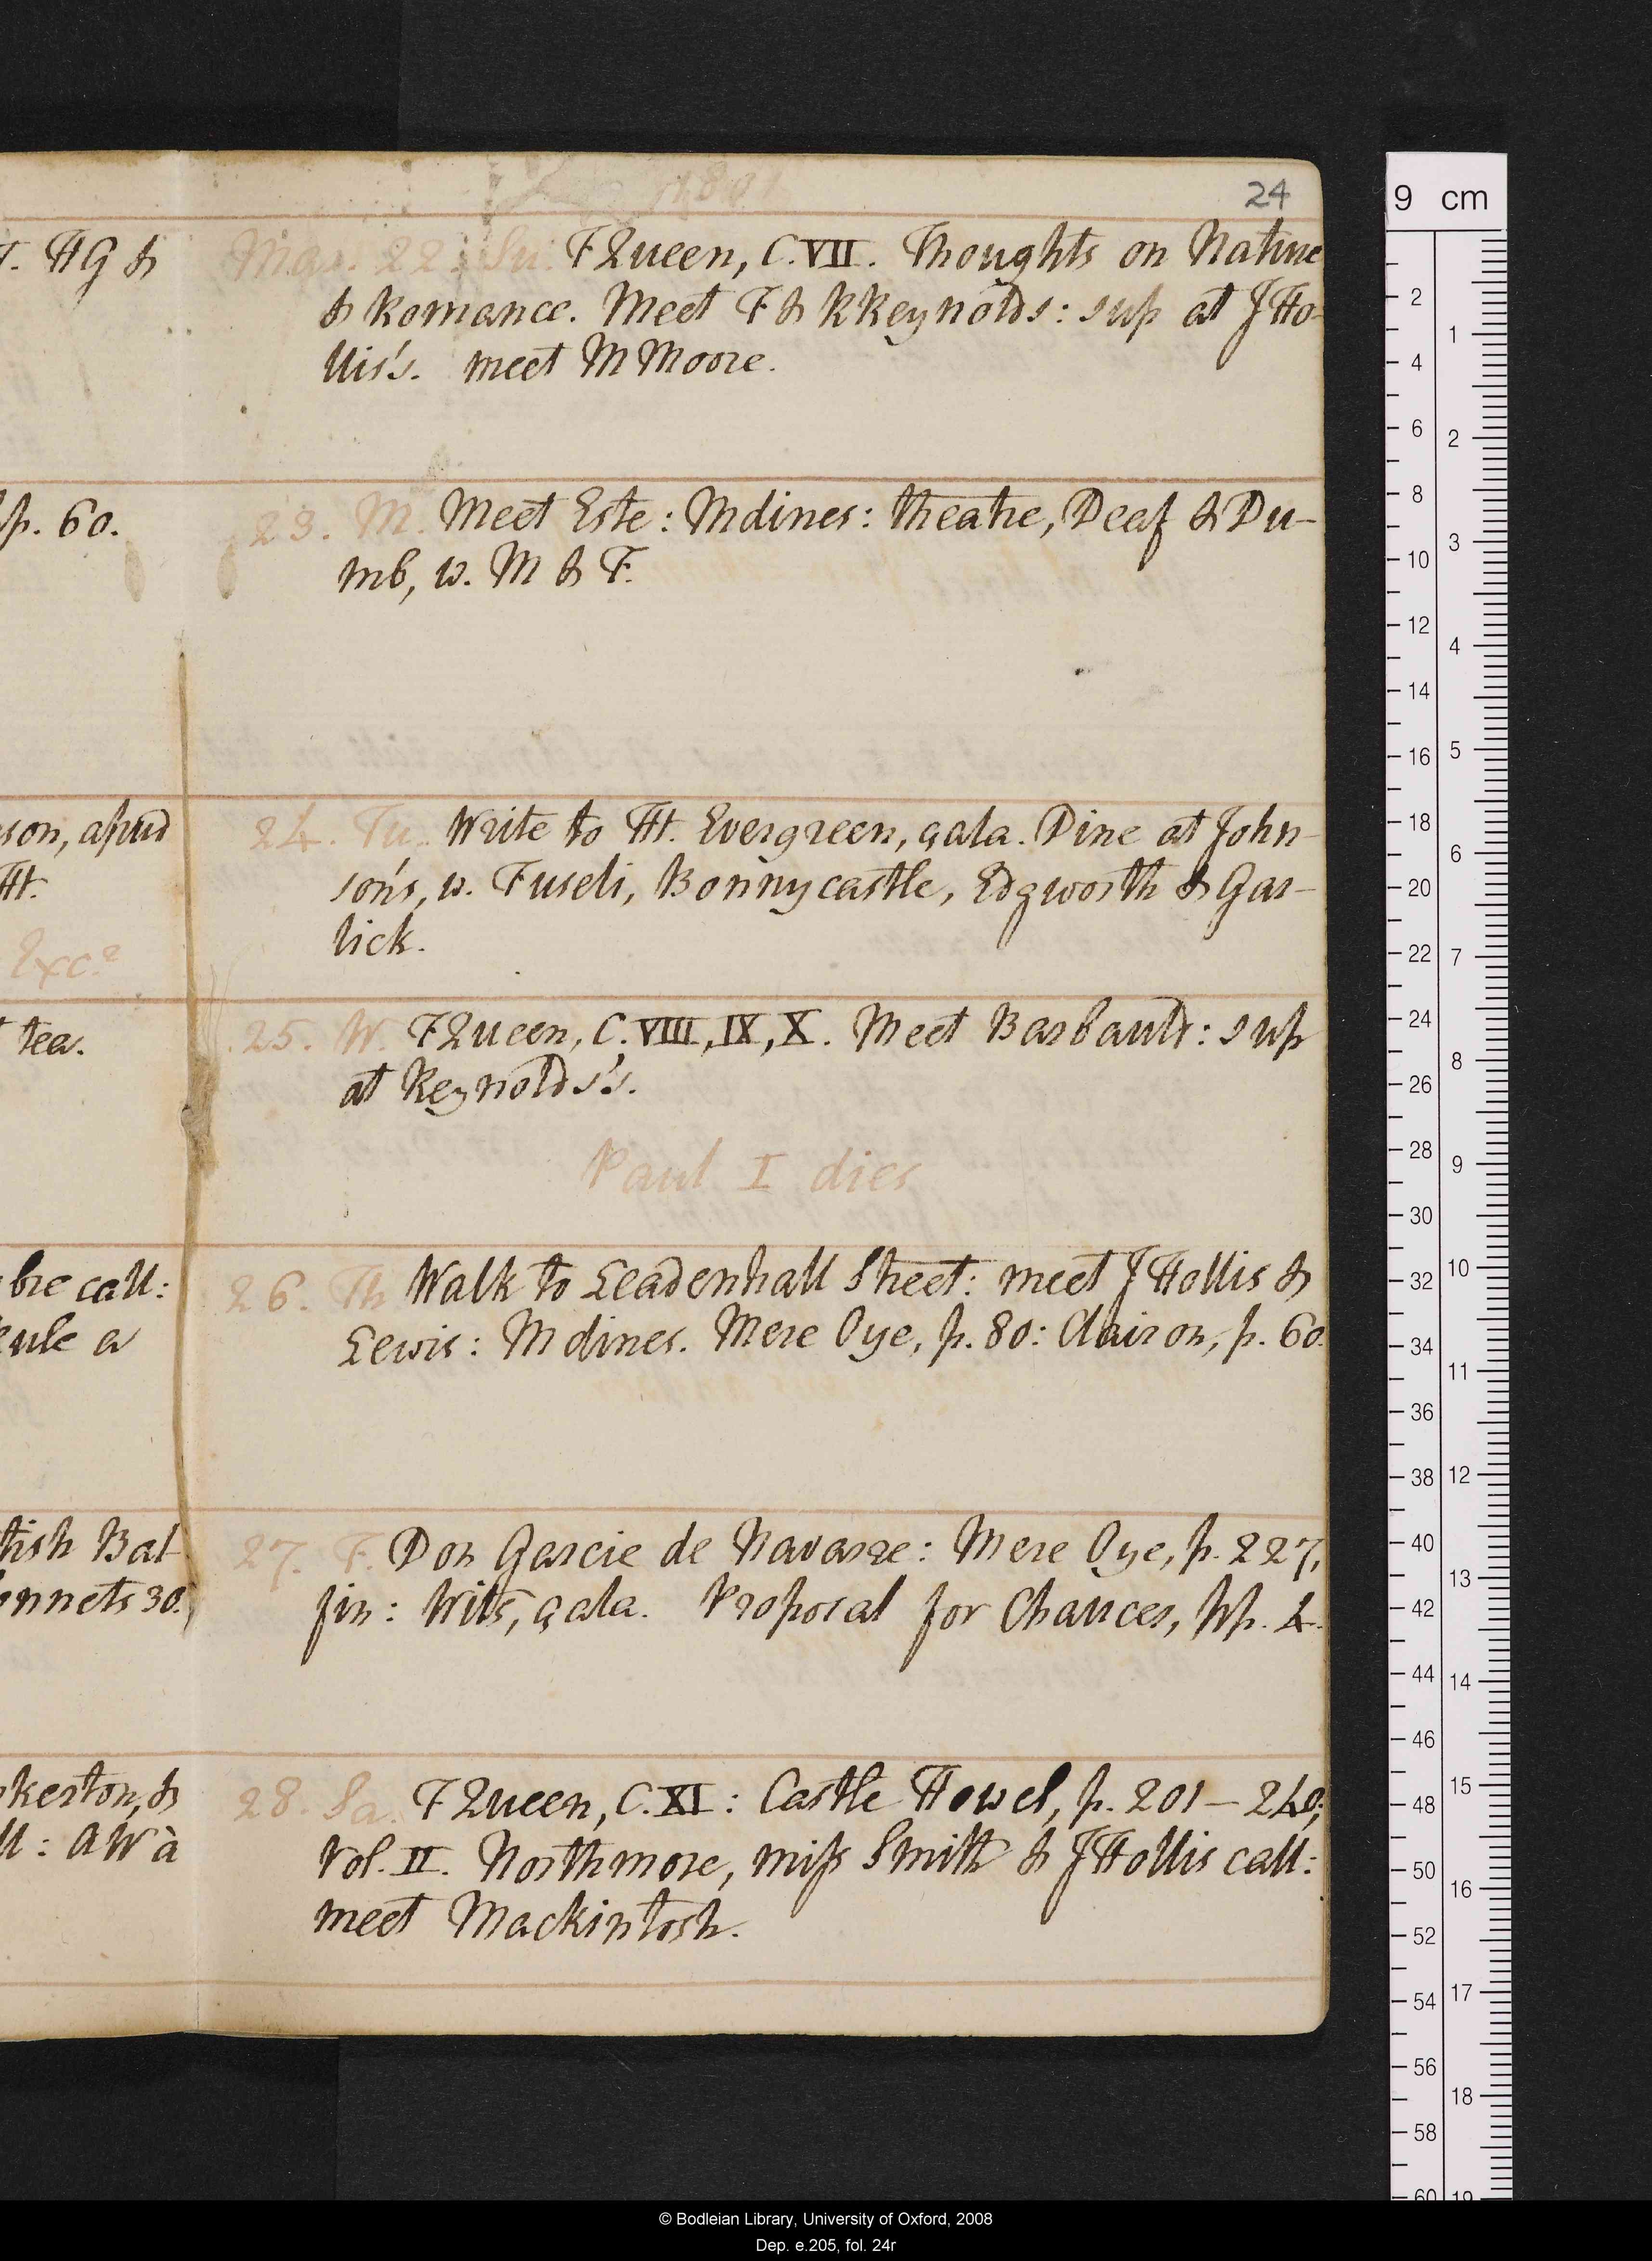 1801
24
Mar. 22. Su. FQueen, C. VII. Thoughts on Nature
& Romance. Meet F & R Reynolds: sup at J Ho-
llis's. meet M Moore.
23. M. Meet Este: M dines: theatre, Deaf & Du-
mb, w. M & F.
24. Tu. Write to Ht. Evergreen, çala. Dine at John-
son's, w. Fuseli, Bonnycastle, Edgworth & Gar-
lick.
25. W. FQueen, C. VIII, IX, X. Meet Barbauld: sup
at Reynolds's.
Paul I dies
26. Th Walk to Leadenhall Street: meet J Hollis &
Lewis: M dines. Mere Oye, p. 80: Clairon, p. 60.
27. F. Don Garcie de Navarre: Mere Oye, p. 227,
fin: Wits, çala. Proposal for Chaucer, pp. 4.
28. Sa. FQueen, C. XI: Castle Howel, p. 201–240;
Vol. II. Northmore, miss Smith & J Hollis call:
meet Mackintosh.
T. HG &
p. 60.
son, apud
Ht.
Excr
tea.
bre call:
eule a
tish Bal
onnets 30.
kerton, &
ll: AW à
9 cm
2
4
6
8
10
12
14
16
18
20
22
24
26
28
30
32
34
36
38
40
42
44
46
48
50
52
54
56
58
60
1
2
3
4
5
6
7
8
9
10
11
12
13
14
15
16
17
18
19
© Bodleian Library, University of Oxford, 2008
Dep. e.205, fol. 24r